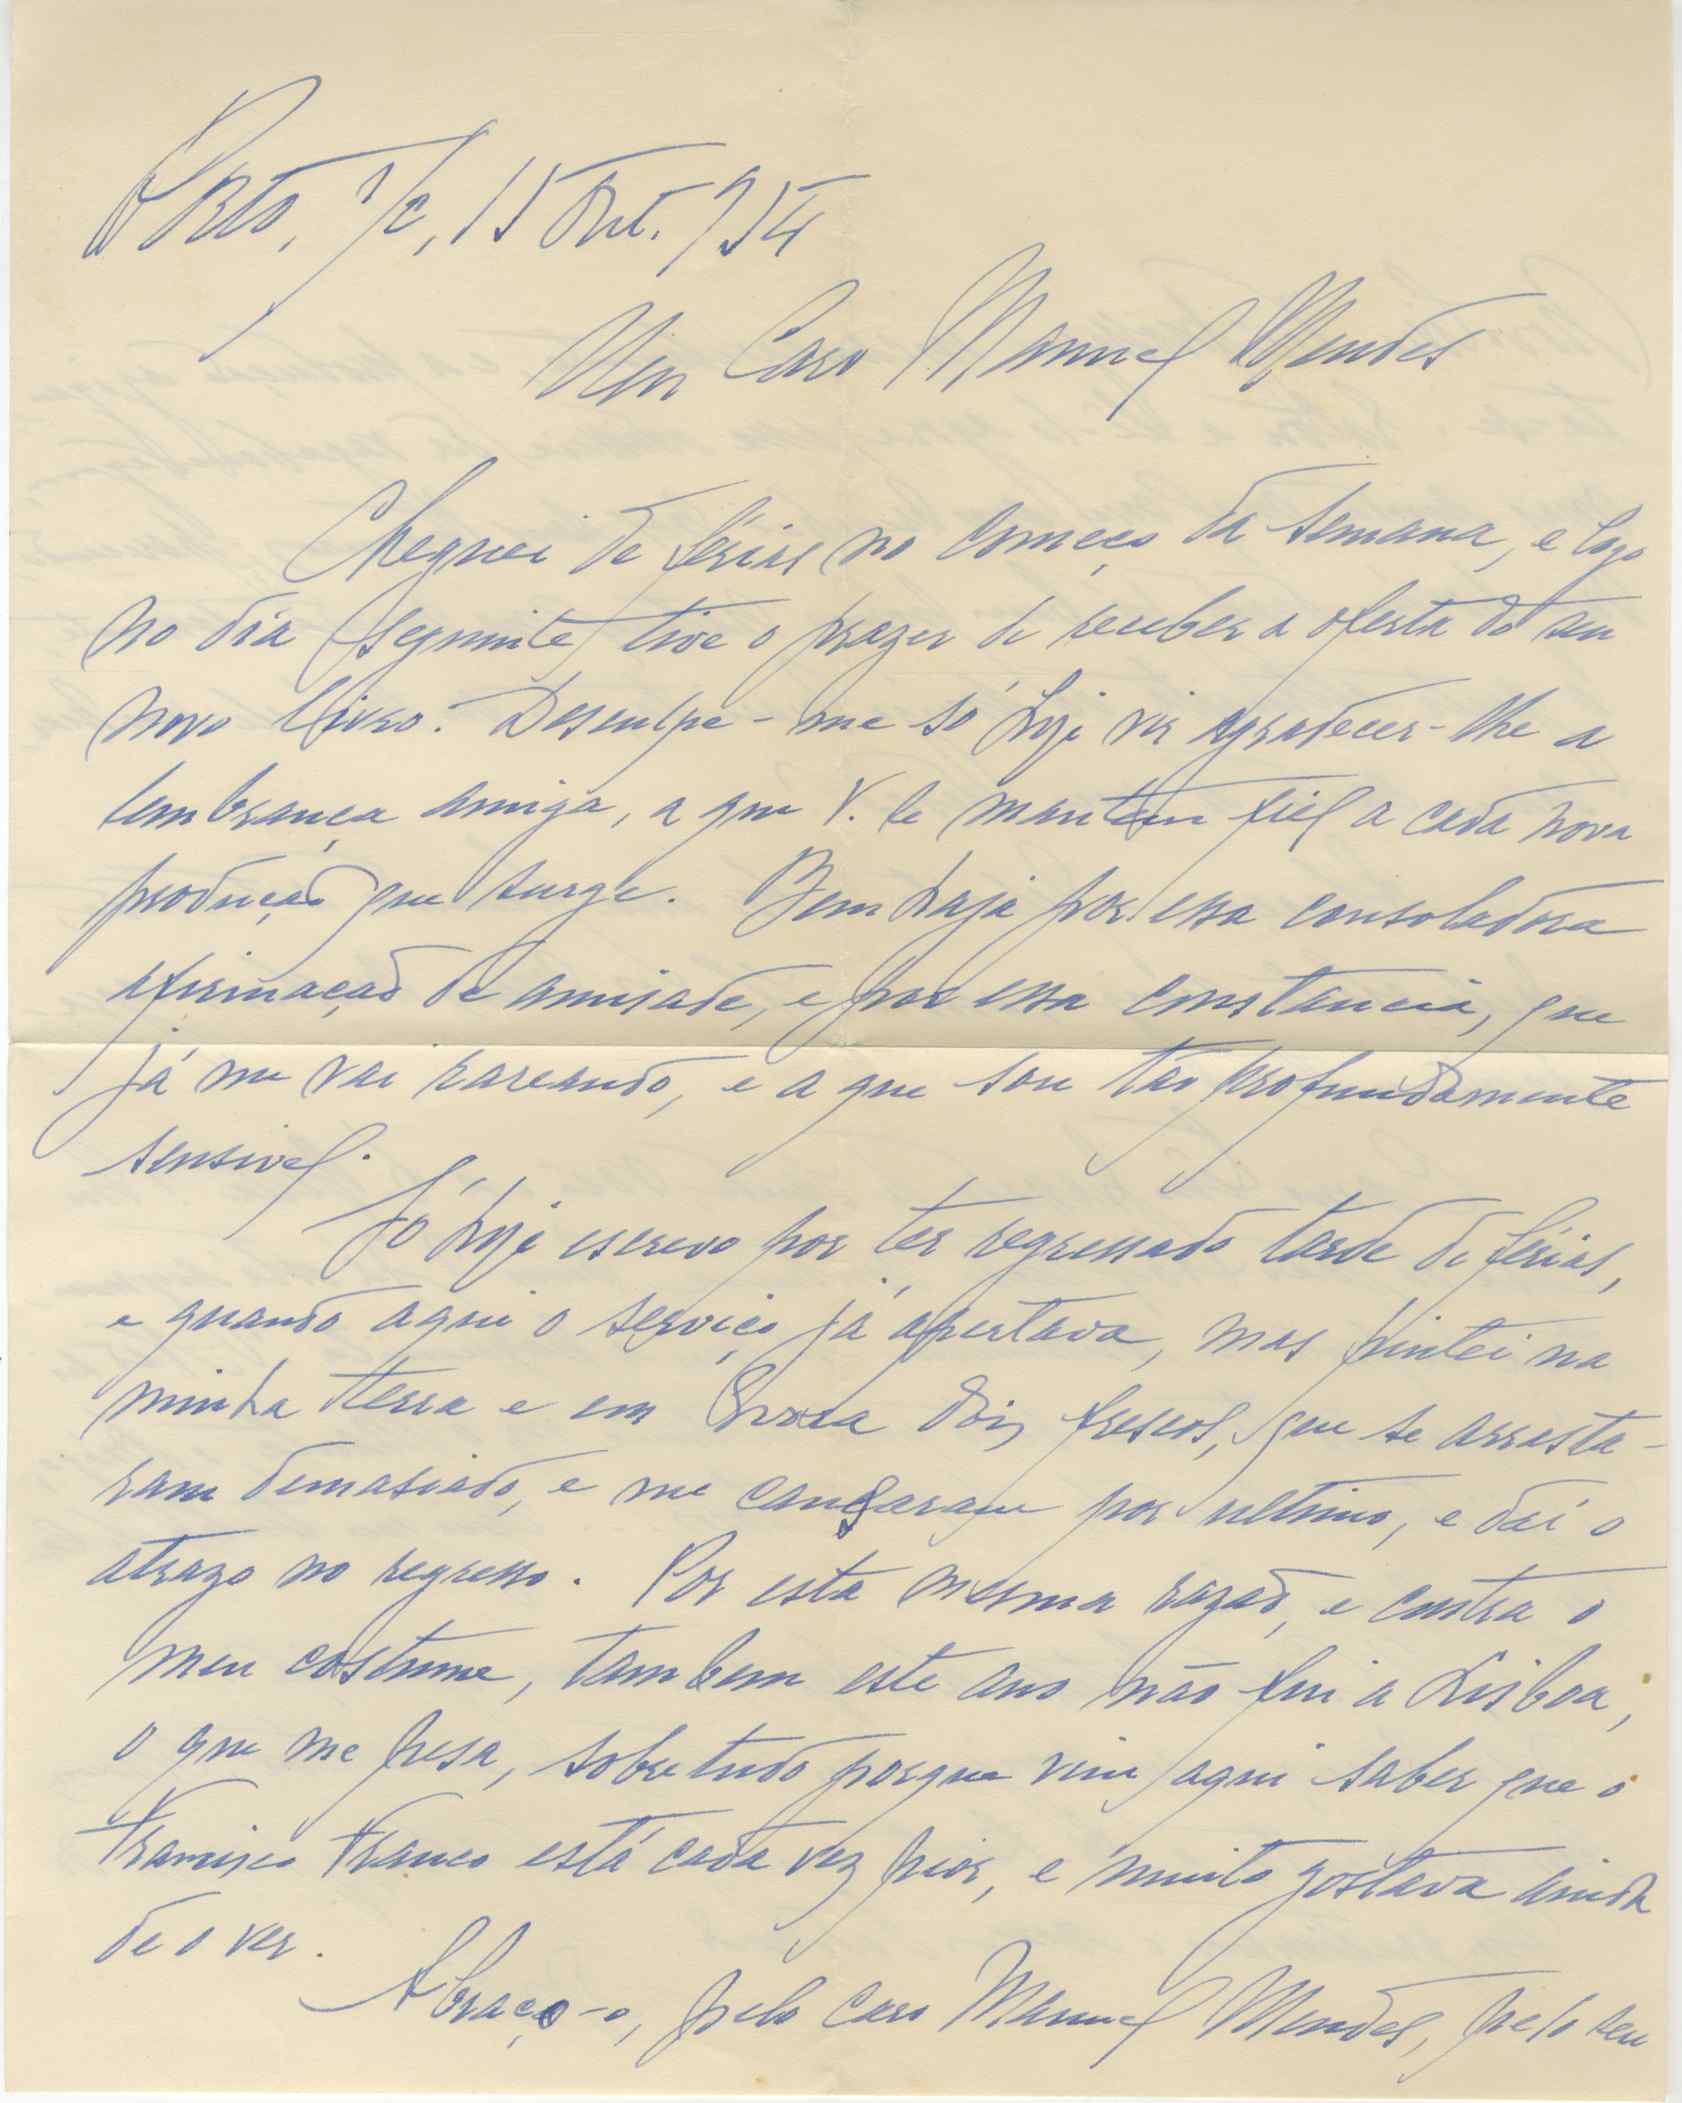 Porto, s/c, 15 Out. 954
Meu Caro Manuel Mendes
Cheguei de férias no começo da semana, e logo
no dia seguinte tive o prazer de receber a oferta do seu
novo livro. Desculpe-me só hoje vir agradecer-lhe a
lembrança amiga, a que V. se mantem fiel a cada nova
produção que surge. Bem haja por essa consoladora
afirmação de amisade, e por essa constancia, que
já me vai rareando, e a que sou tão profundamente
sensivel.
Só hoje escrevo por ter regressado tarde de férias,
e quando aqui o serviço já apertava, mas pintei na
minha terra e em dois frescos, que se arrasta-
ram demasiado, e me cançaram por ultimo, e daí o
atrazo no regresso. Por esta mesma razão, e contra o
meu costume, tambem este ano não fui a Lisboa,
o que me pesa, sobretudo porque vim aqui saber que o
Francisco Franco está cada vez pior, e muito gostava ainda
de o ver.
Abraço-o, pelo caro Manuel Mendes, pelo seu